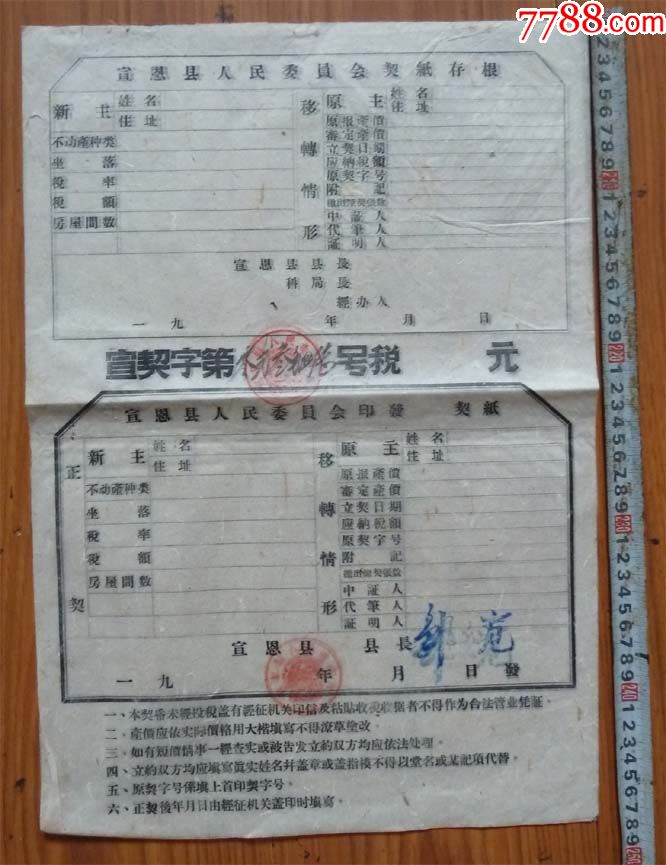 7788.com
宣恩县人民委員会契紙存根
新主 姓名
住址
不动產种类
坐落
稅率
稅額
房屋間数
移轉情形
原主 姓名
住址
原报產價
審定產價
立契日期
应納稅額
原契字号
附記
中証人
代筆人
証明人
宣恩县县長
科局長
經办人
一九 年 月 日
宣契字第 号税 元
宣恩县人民委員会印發 契紙
正契
新主 姓名
住址
不动產种类
坐落
稅率
稅額
房屋間数
移轉情形
原主 姓名
住址
原报產價
審定產價
立契日期
应納稅額
原契字号
附記
中証人
代筆人
証明人
宣恩县 县長
一九 年 月 日發
一、本契帋未經投稅盖有經征机关印信及粘貼收稅收据者不得作为合法管业凭証
二、產價应依实际價格用大楷填寫不得潦草塗改
三、如有短價情事一經查实或被告发立約双方均应依法处理
四、立約双方均应填寫眞实姓名幷盖章或盖指模不得以堂名或某記項代替
五、原契字号係填上首印契字号
六、正契後年月日由經征机关盖印时填寫